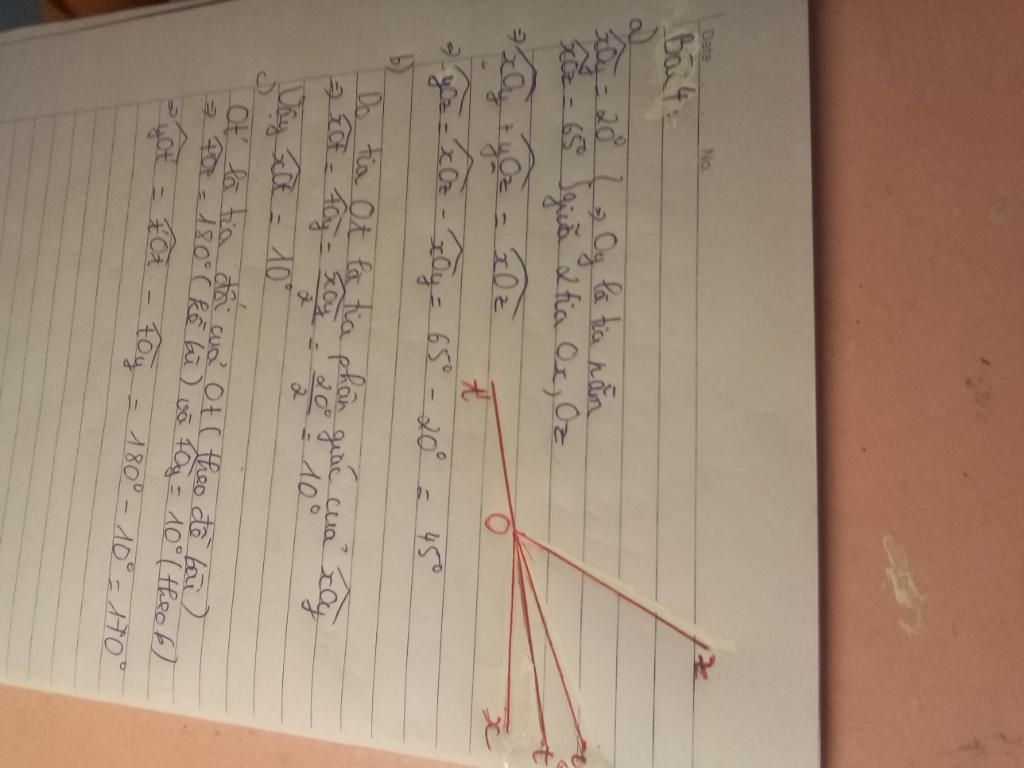 Date No.
Bài 4:
a)
xOy = 20° } => Oy là tia nằm
xOz = 65° } giữa 2 tia Ox, Oz
=> xOy + yOz = xOz
=> yOz = xOz - xOy = 65° - 20° = 45°
b)
Do tia Ot là tia phân giác của xOy
=> xOt = tOy = xOy/2 = 20°/2 = 10°
Vậy xOt = 10°
c)
Ot' là tia đối của Ot (theo đề bài)
=> t'Ot = 180° (kề bù) và tOy = 10° (theo b)
=> yOt' = t'Ot - tOy = 180° - 10° = 170°
z
t'
O
y
t
x